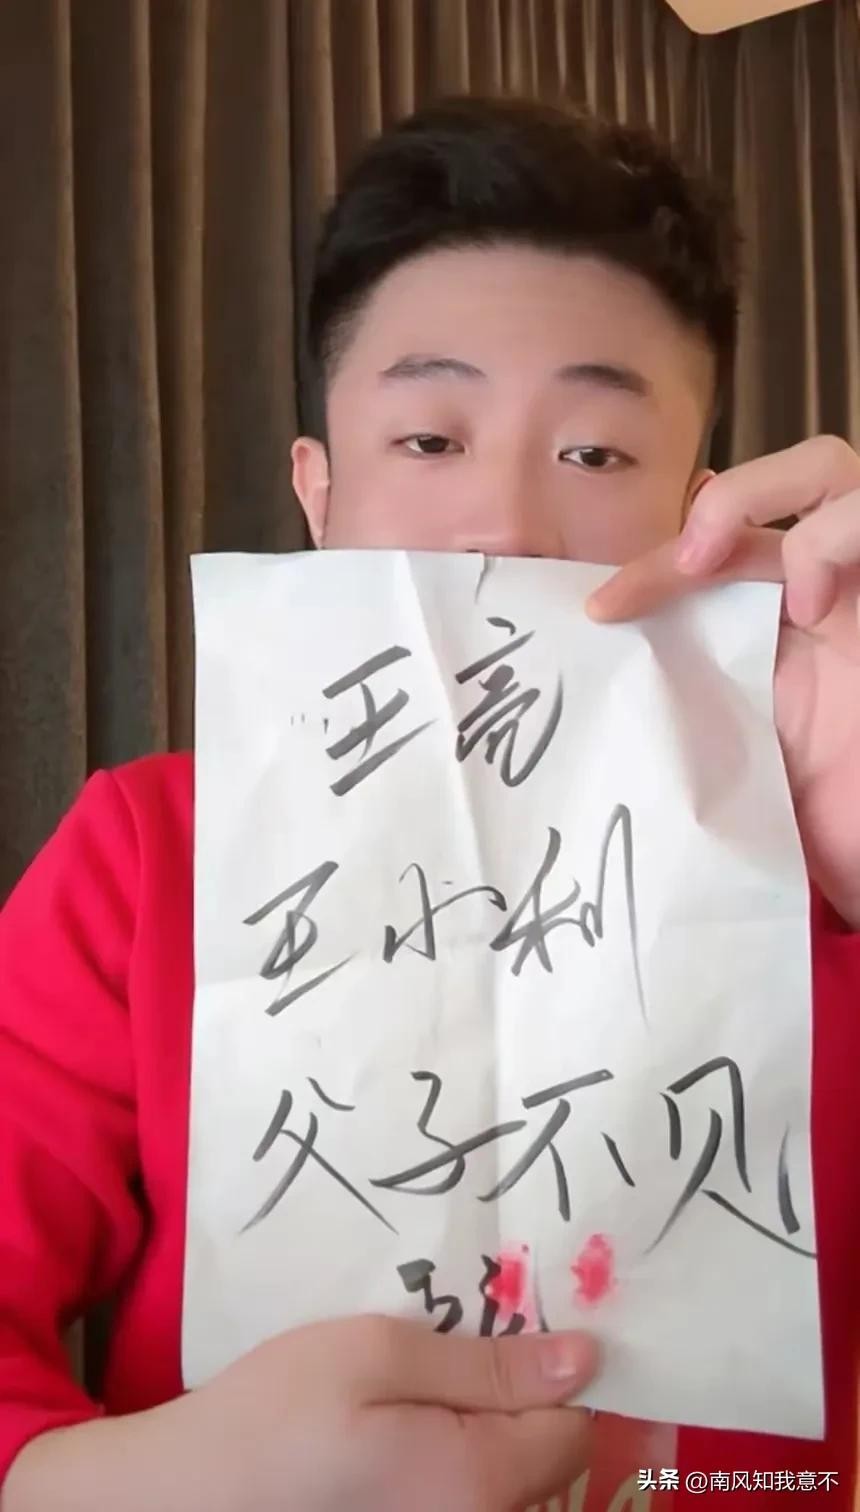 王亮
王小利
父子不见
头条 @南风知我意不